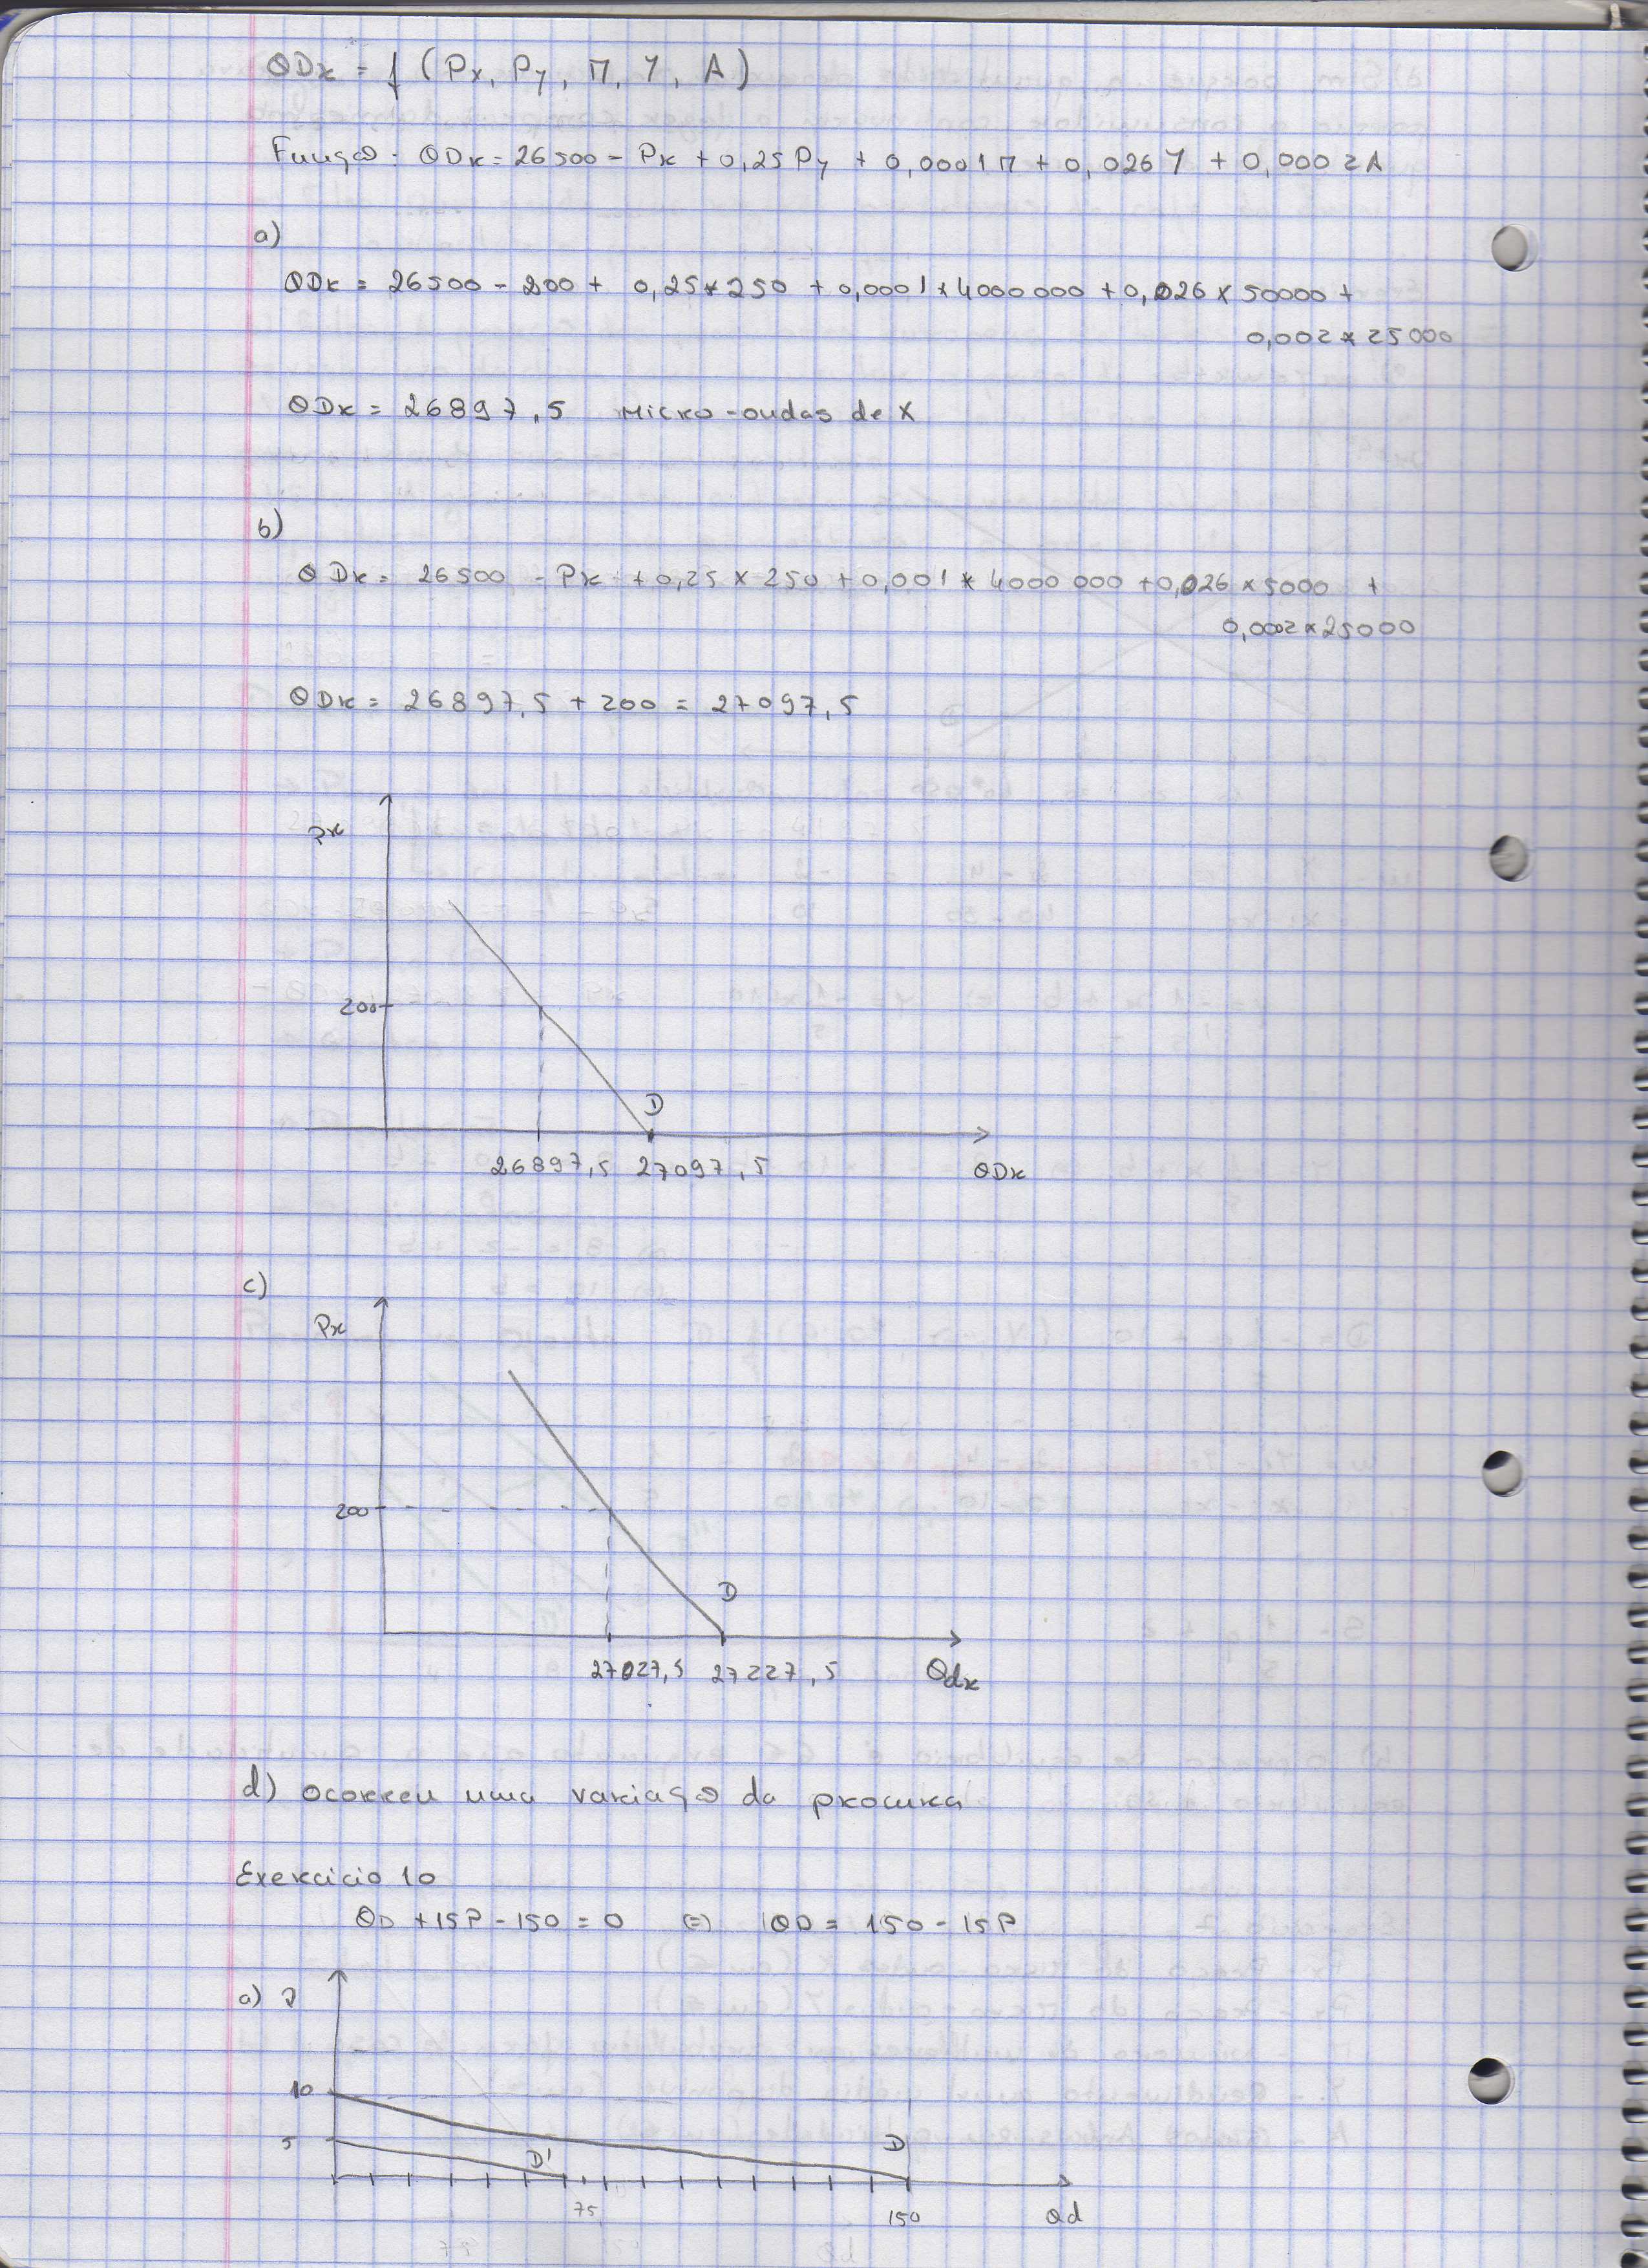 QDx = f (Px, Py, M, Y, A)
Função: QDx = 26500 - Px + 0,25Py + 0,0001M + 0,026Y + 0,0002A
a)
QDx = 26500 - 200 + 0,25x250 + 0,0001x4000000 + 0,026 x 50000 +
0,002 x 25000
QDx = 26897,5 Micro-ondas de X
b)
QDx = 26500 - Px + 0,25 x 250 + 0,001 x 4000 000 + 0,026 x 5000 +
0,0002x25000
QDx = 26897,5 + 200 = 27097,5
Px
200
D
26897,5 27097,5 QDx
c)
Px
200
D
27027,5 27227,5 Qdx
d) ocorreu uma variação da procura
Exercicio 10
QD + 15P - 150 = 0 (=) QD = 150 - 15P
a) P
10
5
D' D
75 150 Qd